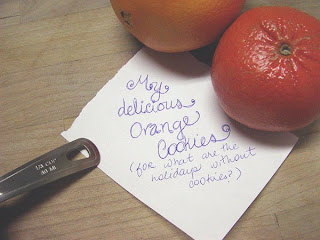 My
delicious
Orange
Cookies
(for what are the
holidays without
cookies?)
1/4 CUP
60 ML